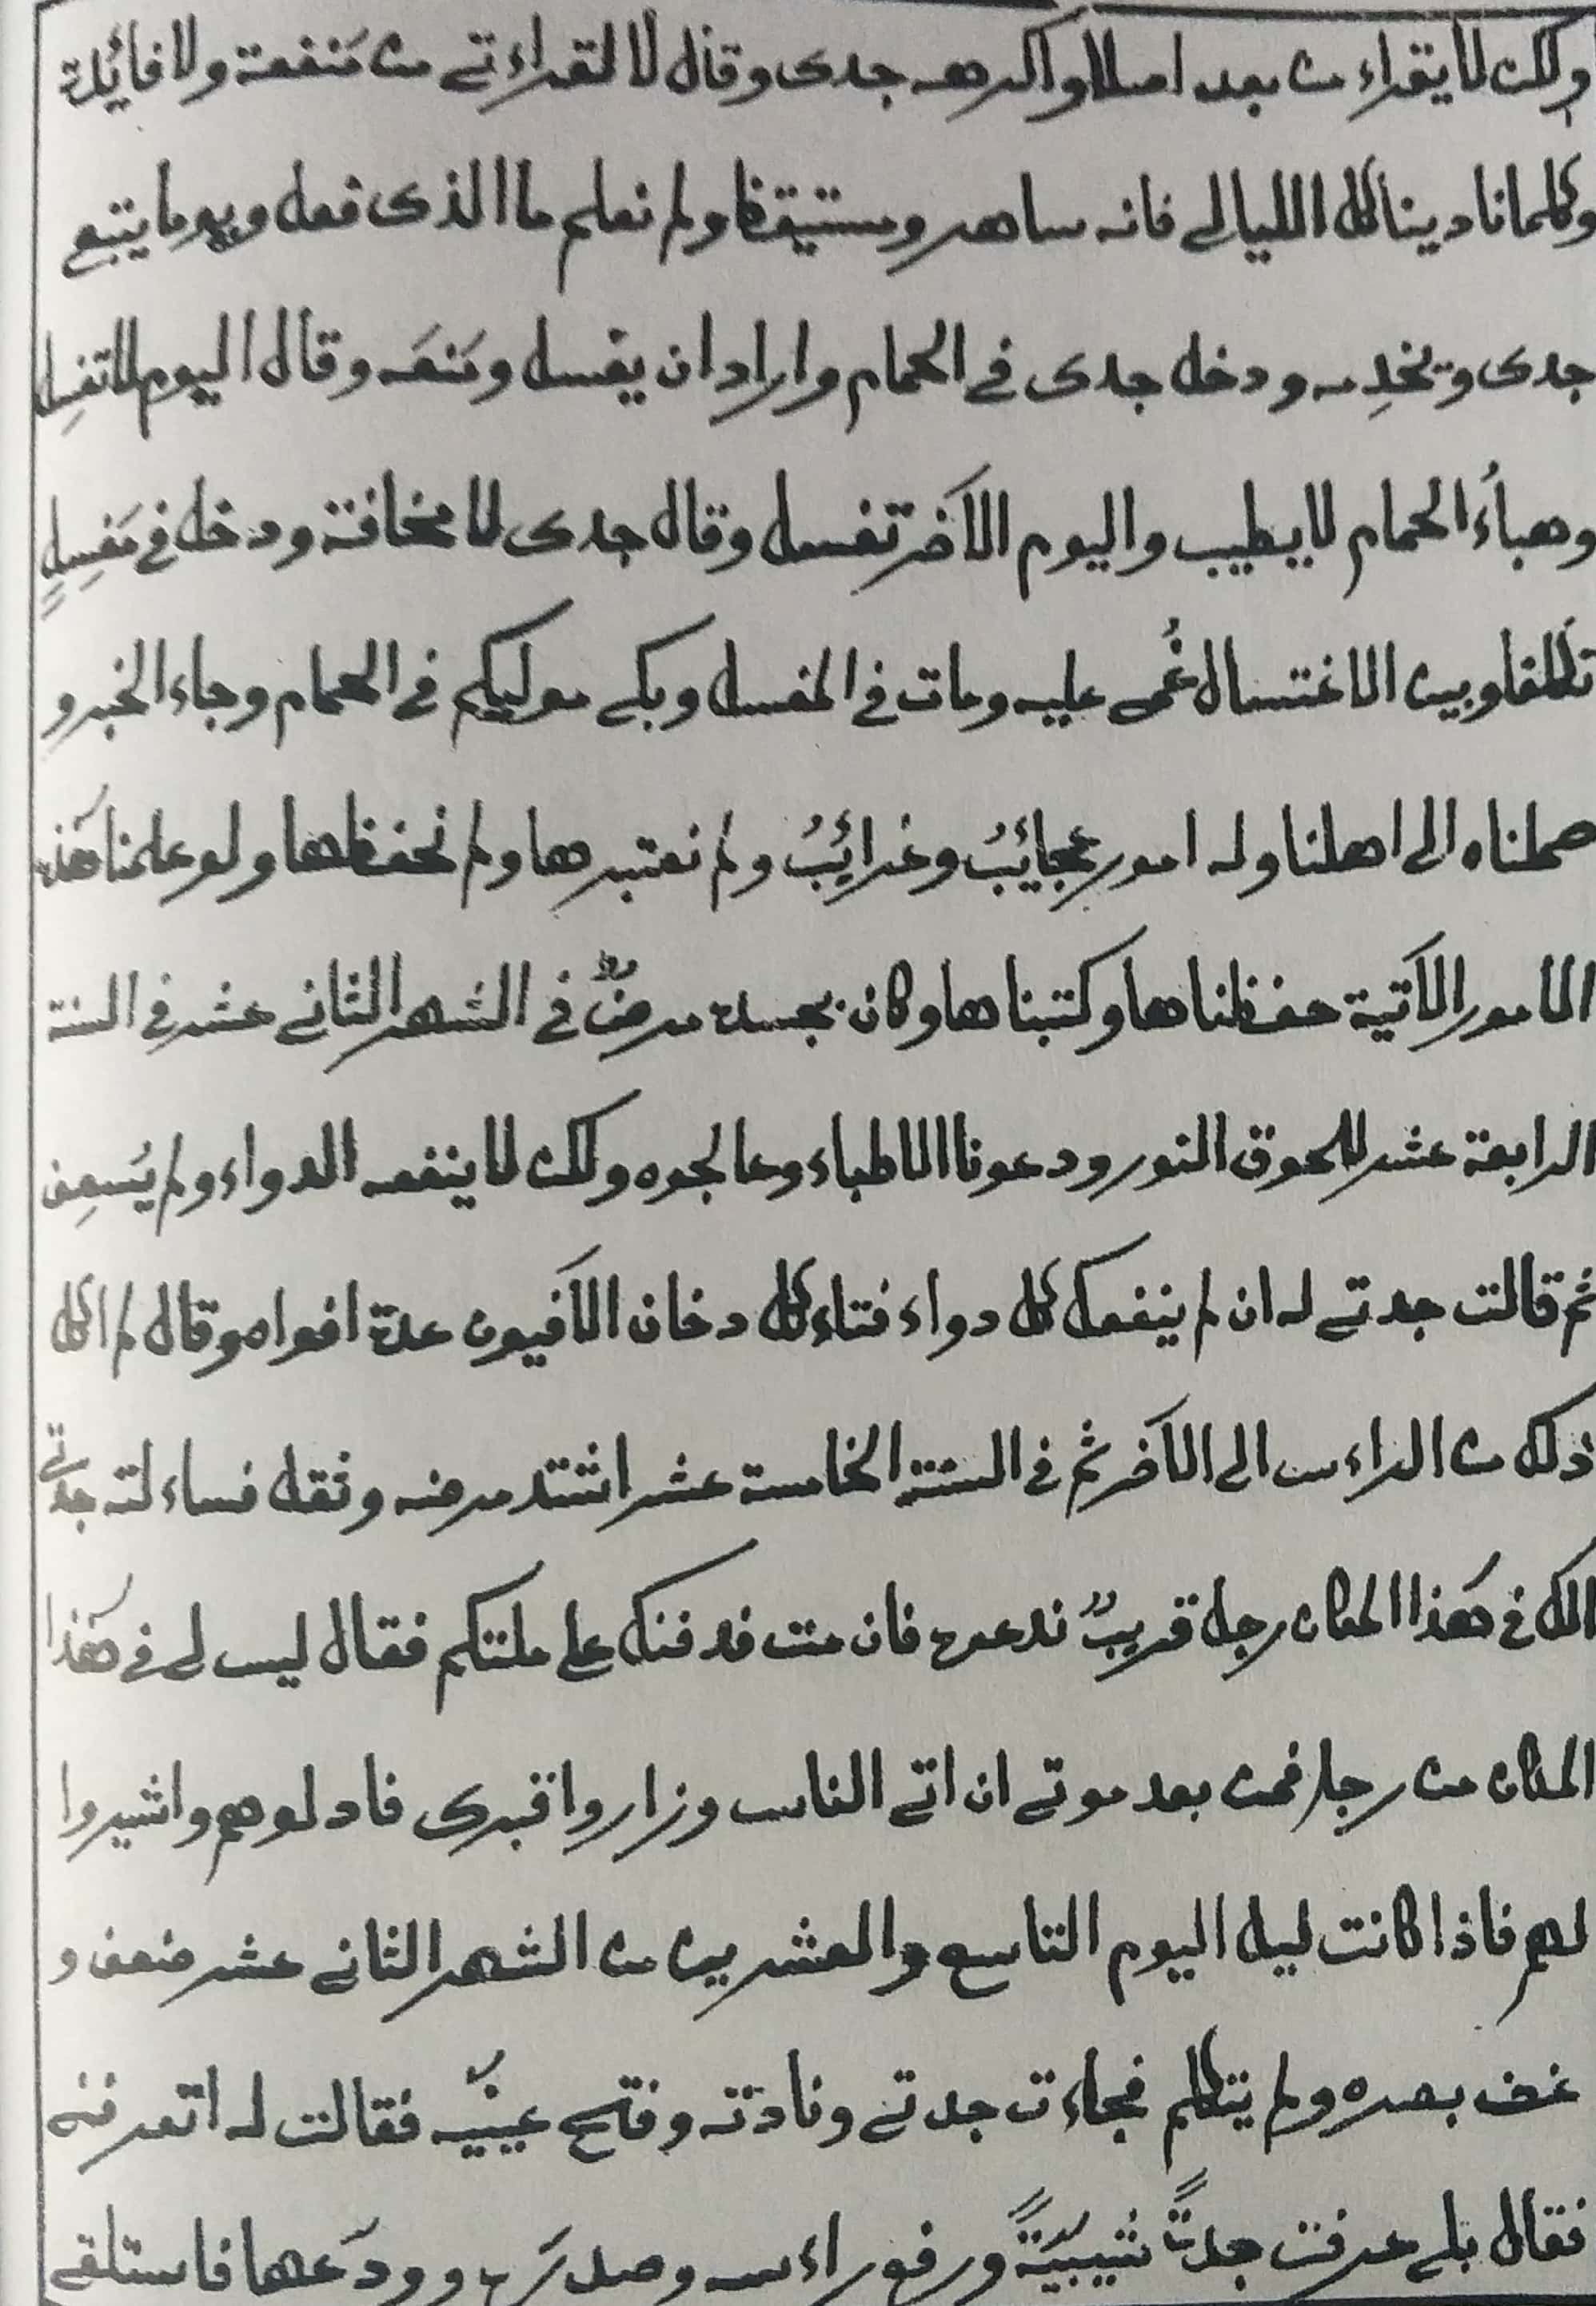 ولكن لا يقراء من بعد اصلا واكرهه جدى وقال لا لقراءتي من مَنفعة ولا فائدة
وكلما نادينا كل الليالي فانه ساهر ومستيقظا ولم نعلم ما الذى فعله ويوما يتبع
جدى ويخدِمه ودخل جدى في الحمام واراد ان يغسل ومَنعَه وقال اليوم لا تغسِل
وهباءُ الحمام لا يطيب واليوم الآخَر تغسل وقال جدى لا مخافة ودخل في مَغسِلٍ
تكلفا وبين الاغتسال غُمى عليه ومات في المغسل وبكى موليكم في الحمام وجاء الخبر و
حملناه الى اهلنا وله امور عجايَبُ وغرايَبُ ولم نعتبرها ولم نحفظها ولو علمنا هَذه
الامور الآتية حفظناها وكتبناها وكان بجسده مرضٌ في الشهر الثاني عشر في السنة
الرابعة عشر للحوق النور ودعونا الاطباء وعالجوه ولكن لا ينفعه الدواء ولم يُسعِف
ثم قالت جدتي له ان لم ينفعك كل دواء فتاءكل دخان الآفيون عدة افواه وقال لم اكل
ذلك من الراءس الى الآخر ثم في السنة الخامسة عشر اشتد مرضه وثقل فساءلته جدتي
الك في هَذا المكان رجل قريبٌ ندعوه فان مت فدفنك على ملتكم فقال ليس لي في هَذا
المكان من رجل فمن بعد موتي ان اتى الناس وزاروا قبرى فادلوهم واشيروا
لهم فاذا كانت ليل اليوم التاسع والعشرين من الشهر الثاني عشر ضعف و
غض بصره ولم يتكلم فجاءت جدتي ونادَته وفتح عينيه فقالت له اتعرفني
فقال بلى عرفت جدةً شيبيّةً ورفع راءسه وصدرَه وودَعها فاستلقى